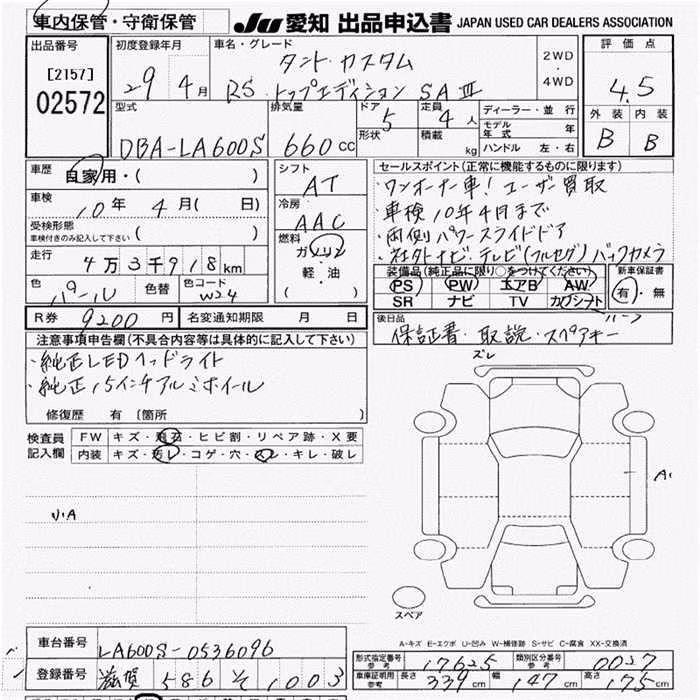 車内保管・守衛保管
JU 愛知 出品申込書 JAPAN USED CAR DEALERS ASSOCIATION
出品番号
[2157]
02572
初度登録年月
29年 4月
車名・グレード
タント カスタム
RS トップエディション SAⅢ
2WD
・
4WD
評価点
4.5
外装 内装
B B
型式
DBA-LA600S
排気量
660cc
ドア
形状
5
定員
4人
積載
kg
ディーラー・並行
モデル
年式 年
ハンドル 左・右
車歴
自家用・( )
車検
10年 4月( 日)
受検形態
車検付きのみ記入して下さい ( )
走行
4万3千918km
色
パール
色替
色コード
W24
シフト
AT
冷房
AAC
燃料
ガソリン
軽・油
( )
セールスポイント(正常に機能するものに限ります)
・ワンオーナー車!ユーザー買取
・車検10年4月まで
・両側パワースライドドア
・社外ナビ・テレビ(フルセグ)バックカメラ
装備品(純正品に限り○をつけてください)
PS PW エアB AW
SR ナビ TV カワシート
ハーフ
新車保証書
有・無
R券 9200円
名変通知期限 月 日
後日品
保証書・取説・スペアキー
注意事項申告欄(不具合内容等は具体的に記入して下さい)
・純正LEDヘッドライト
・純正15インチアルミホイール
修復歴 有 〔箇所 〕
検査員
記入欄
FW キズ・飛石・ヒビ割・リペア跡・X要
内装 キズ・汚レ・コゲ・穴・スレ・キレ・破レ
小A
ズレ
A1
スペア
A-キズ E-エクボ U-凹み W-補修跡 S-サビ C-腐食 XX-交換済
車台番号
LA600S-0536096
登録番号
滋賀 586 そ 1003
形式指定番号
参考
17625
類別区分番号
参考
0027
車庫証明用
参考
長さ 339cm 幅 147cm 高さ 175cm